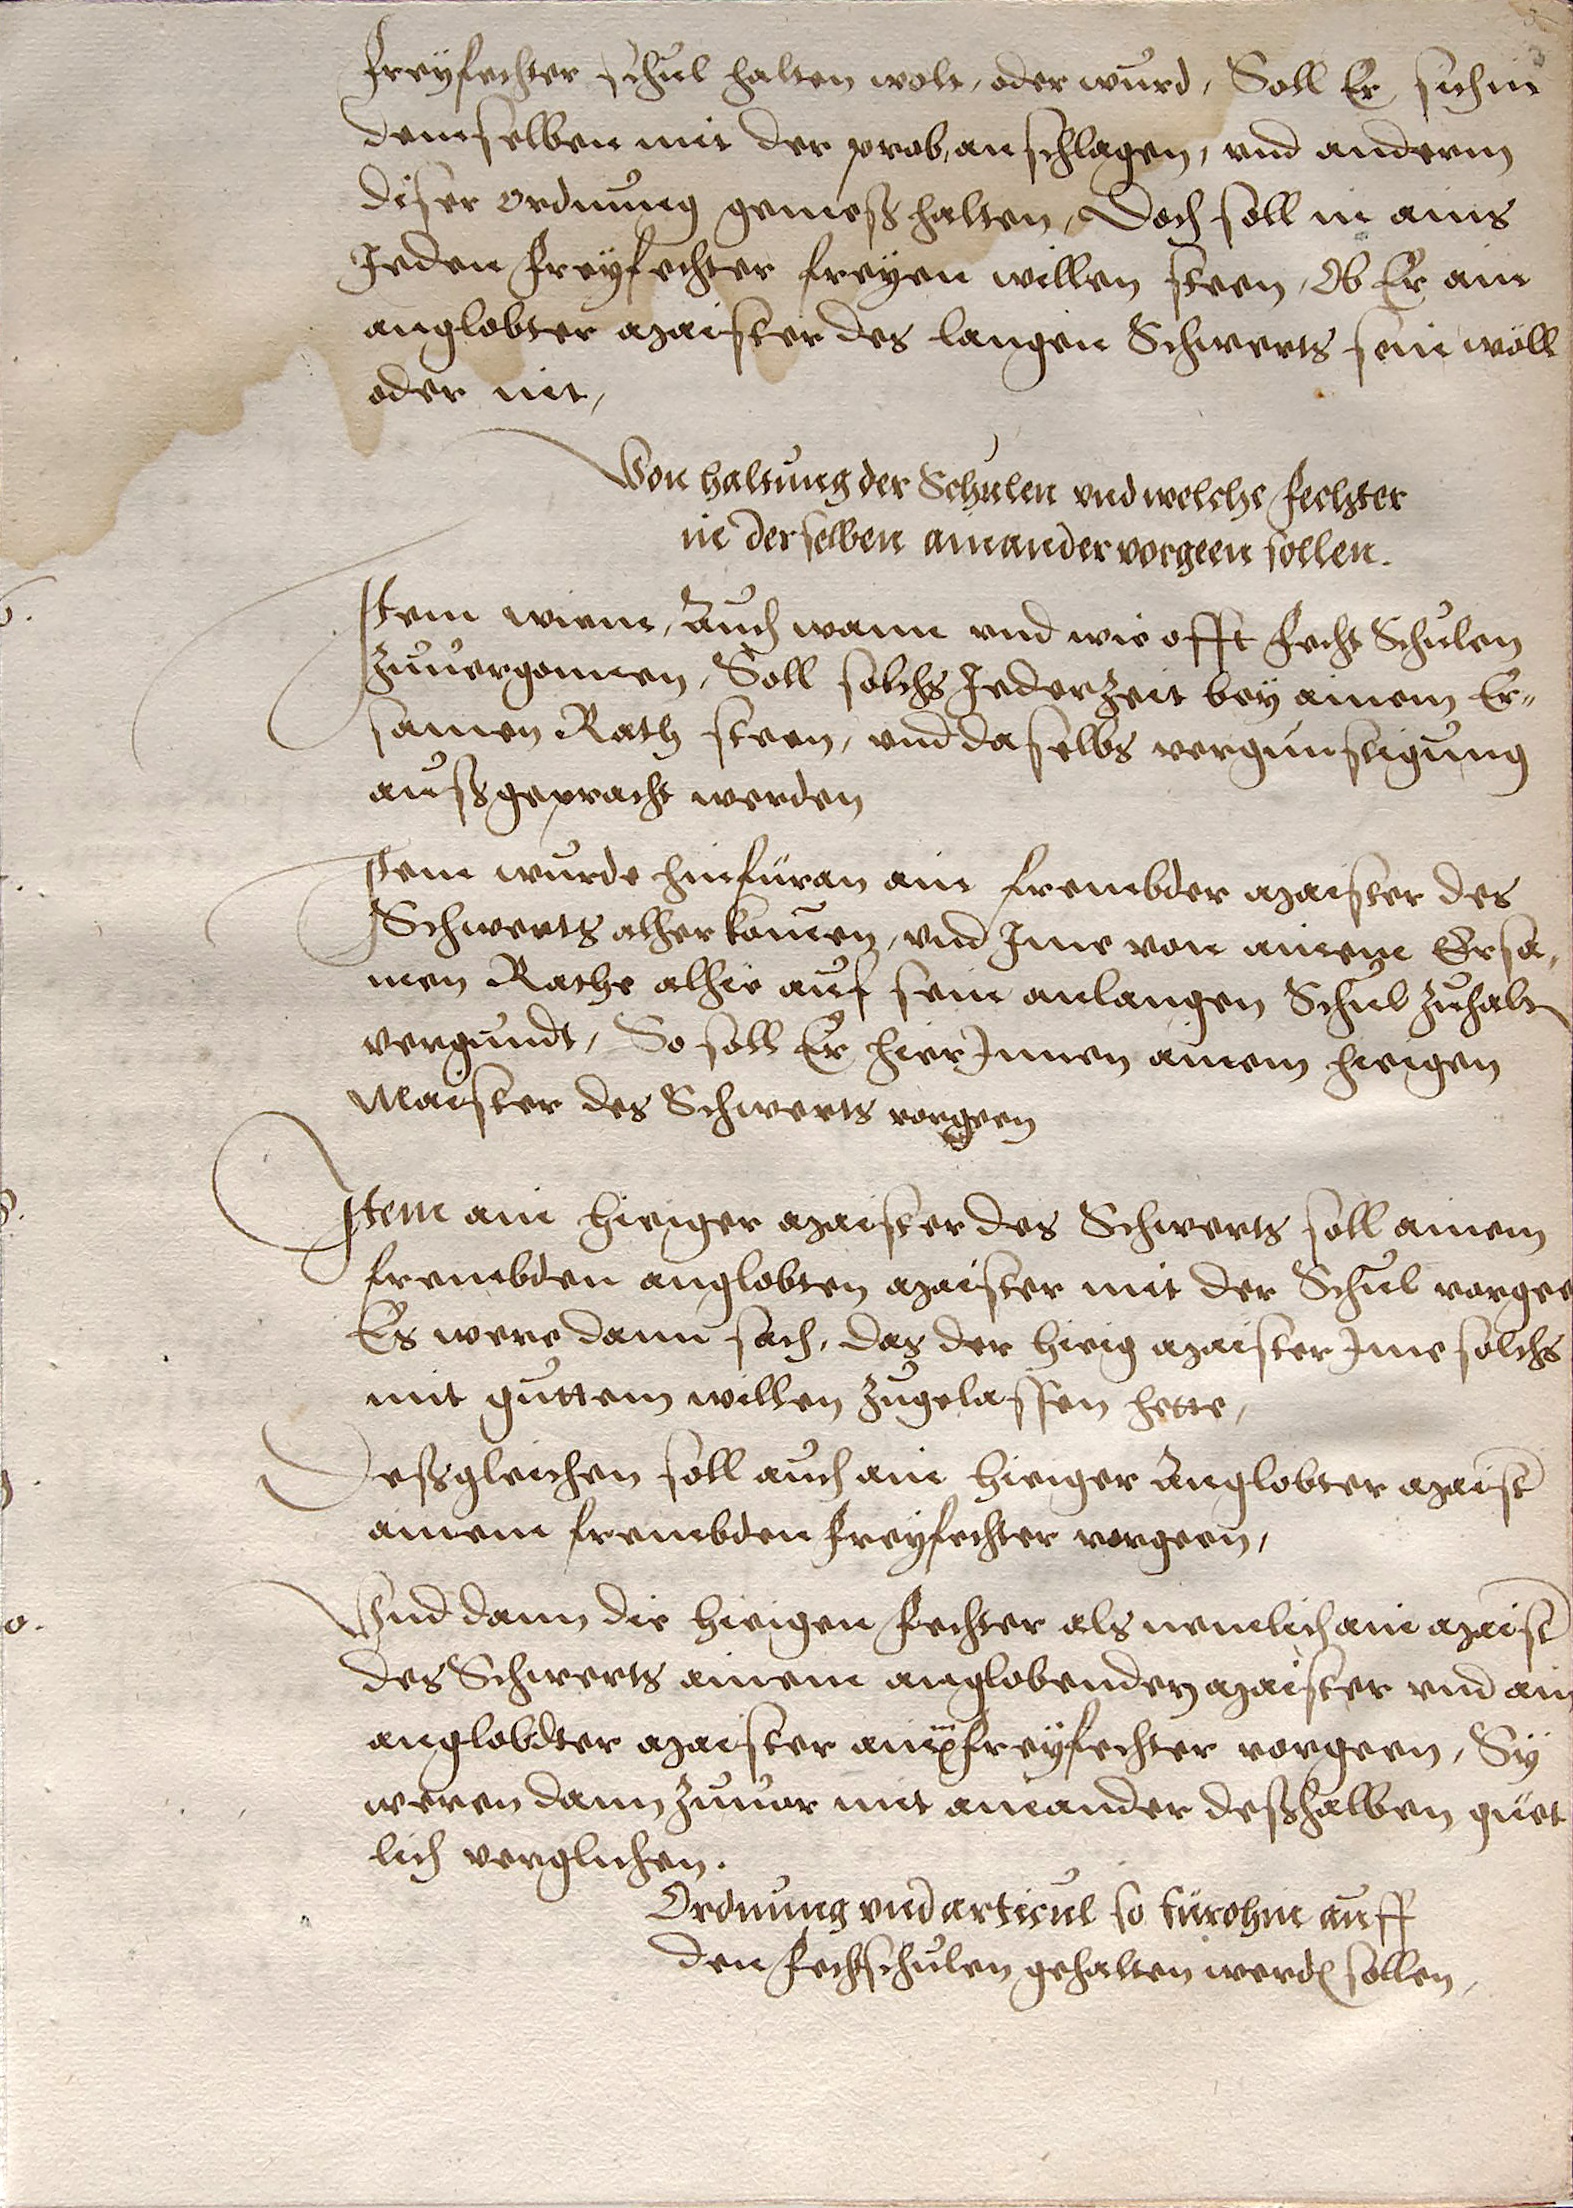 freÿfechter schul halten wolt, oder wurd, Soll Er sich in
demselben mit der prob, anschlagen, vnd anderm
diser ordnung gemeß halten, Doch soll in ains
Jeden freÿfechter freÿen willen steen, Ob Er ain
anglobter Maister des langen Schwerts sein wöll
oder nit,
Von haltung der Schulen vnd welche fechter
in derselben ainander vorgeen sollen.
Item wieme, Auch wann vnd wie offt fecht Schulen
zuuergonnen, Soll solchs Jederzeit bey ainem Er„
samen Rath steen, vnd daselbs vergünstigung
außgepracht werden
8.
Item wurde hinfüran ain frembder Maister des
Schwerts alher komen, vnd Jme von ainem Ersa„
men Rathe alhie auf sein anlangen Schul zuhalten
vergundt, So soll Er hierJnnen ainem hieigen
Maister des Schwerts vorgeen
Item ain hieiger Maister des Schwerts soll ainem
frembden anglobten Maister mit der Schul vorgee
Es were dann sach, das der hieig Maister Jme solchs
mit guttem willen zugelassen hette,
Deßgleichen soll auch ain hieiger Anglobter Maist
ainem frembden freyfechter vorgeen,
o.
Vnd dann die hieigen fechter als nemelich ain Maist
des Schwerts ainem anglobenden Maister vnd ain
anglobdter Maister aim freÿfechter vorgeen, Sÿ
weren dann zuuor mit ainander deßhalben güet
lich verglichen.
Ordnung vnd articul so fürohin auff
den fechschulen gehalten werden sollen,